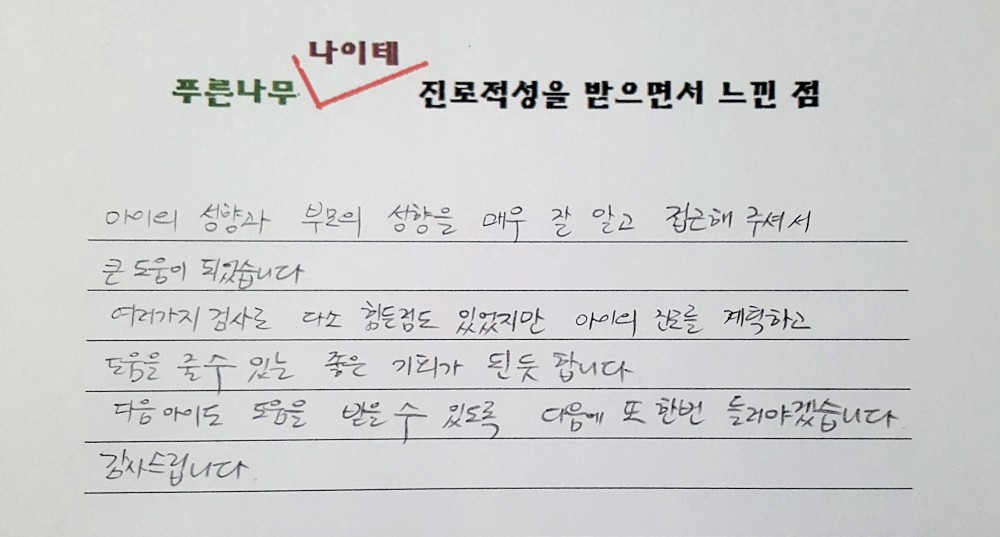 나이테
푸른나무 진로적성을 받으면서 느낀 점
아이의 성향과 부모의 성향을 매우 잘 알고 접근해 주셔서
큰 도움이 되었습니다
여러가지 검사로 다소 힘든점도 있었지만 아이의 진로를 계획하고
도움을 줄수 있는 좋은 기회가 된듯 합니다
다음아이도 도움을 받을 수 있도록 다음에 또 한번 들러야겠습니다.
감사드립니다.